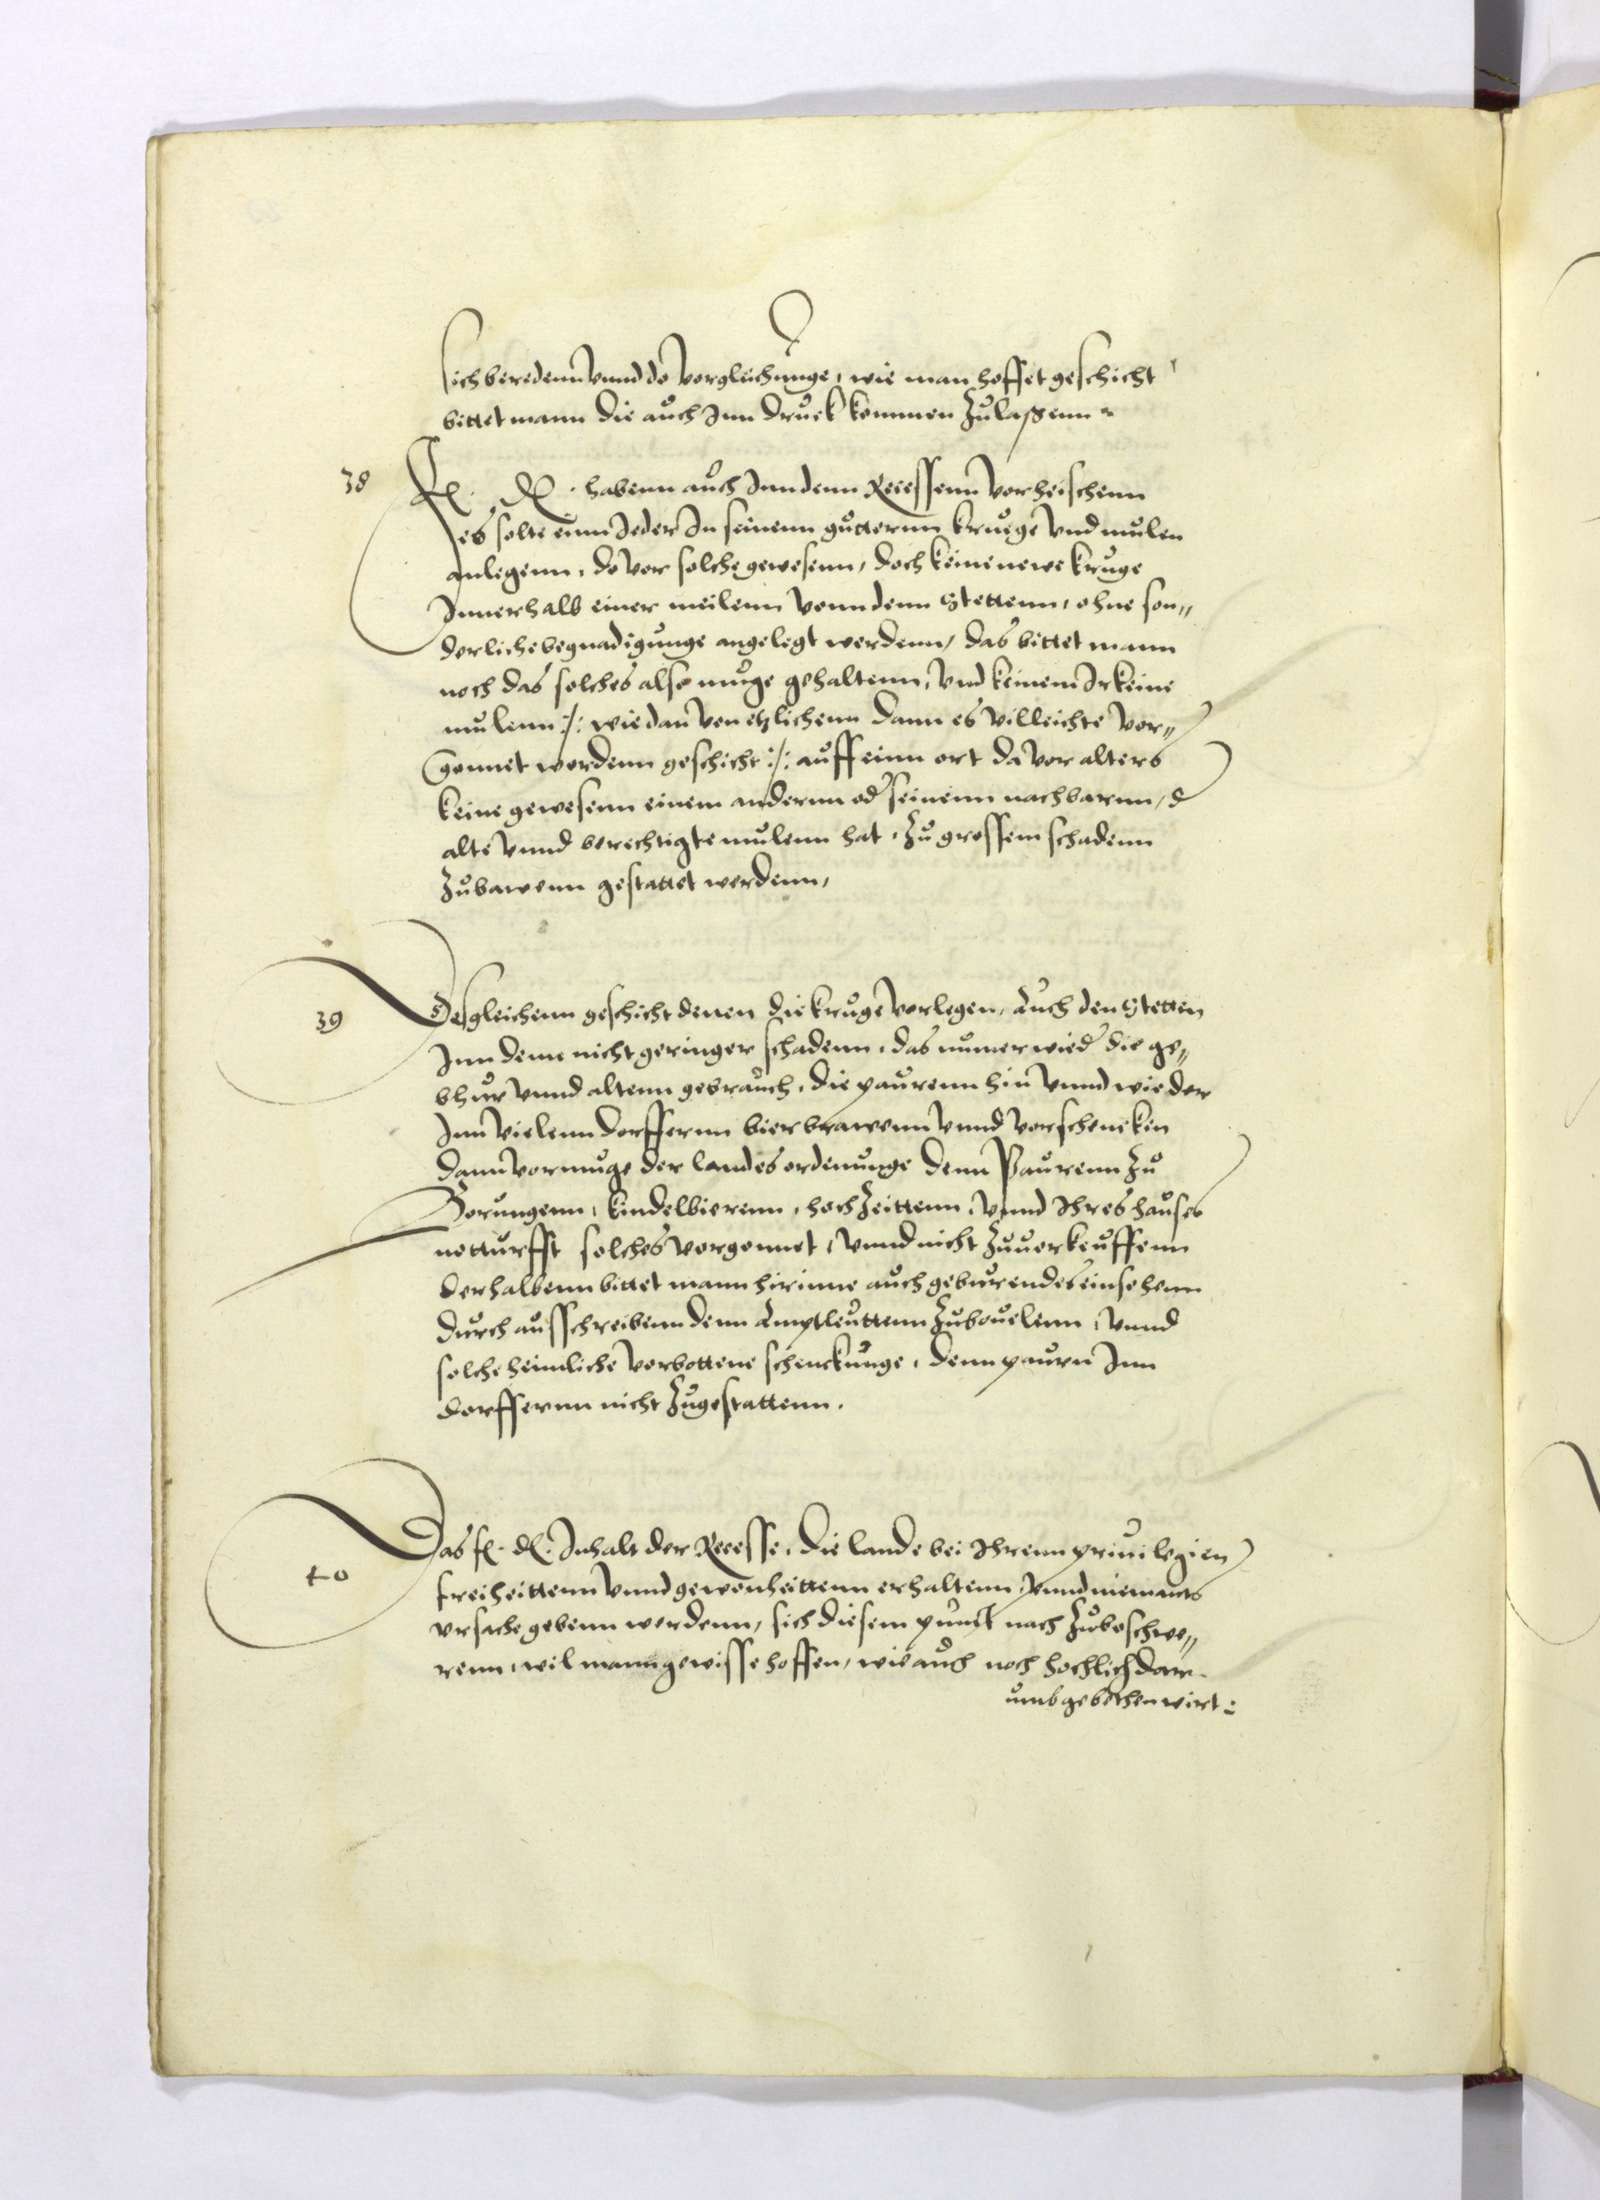 sich beredenn vnnd do vorgleichunge, wie man hoffet geschicht
bittet mann die auch Inn druck kommen zulaßenn
38
F. D. habenn auch Inn denn Recessenn vorheischenn
es solte einn Jeder In seinenn gutternn kruege vnd mulen
anlegenn, do vor solche gewesenn, doch keine newe kruge
Innerhalb einer meilenn vonn denn Stettenn, ohne son„
derliche begnadigunge angelegt werdenn, das bittet mann
noch das solches also muge gehaltenn, vnd keinem Irkeine
mulenn :/: wie dan von etzlichenn dann es villeichte vor„
gonnet wordenn geschicht :/: auff einn ort da vor alters
keine gewesenn einem andernn od seinenn nachbarnn, d
alte vnnd berechtigte mulenn hat, zu grossem schadenn
zubawenn gestattet werdenn,
39
Desgleichenn geschicht denen die kruge vorlegen, Auch den Stetten
Inn deme nicht geringer schadenn, das numer wied die ge„
bhur vnnd altenn gebrauch, die paurenn hin vnnd wieder
Inn vielenn dorffernn bier brawenn vnnd vorschencken
dann vormuge der landesordenunge denn Paurenn zu
Borungenn, kindelbierenn, hochzeittenn, vnnd Ihres hauses
notturfft solches vorgonnet, vnnd nicht zuuorkeuffenn
derhalbenn bittet mann hirinne auch geburendes einsehenn
durch ausschreibenn denn Amptleuttenn zubouelenn, vnnd
solche heimliche vorbottene schenckunge, denn paurn Inn
dorffernn nicht zugestattenn.
40
Das f. d. Inhalt der Recesse, die lande bei Ihrenn priuilegien
freiheittenn vnnd gewonheittenn erhaltenn, vnnd niemants
vrsache gebenn werdenn, sich diesem punct nach zubeschwe„
renn, wil mann gewisse hoffen, wie auch noch hochlich dar
umb gebethen wirt: